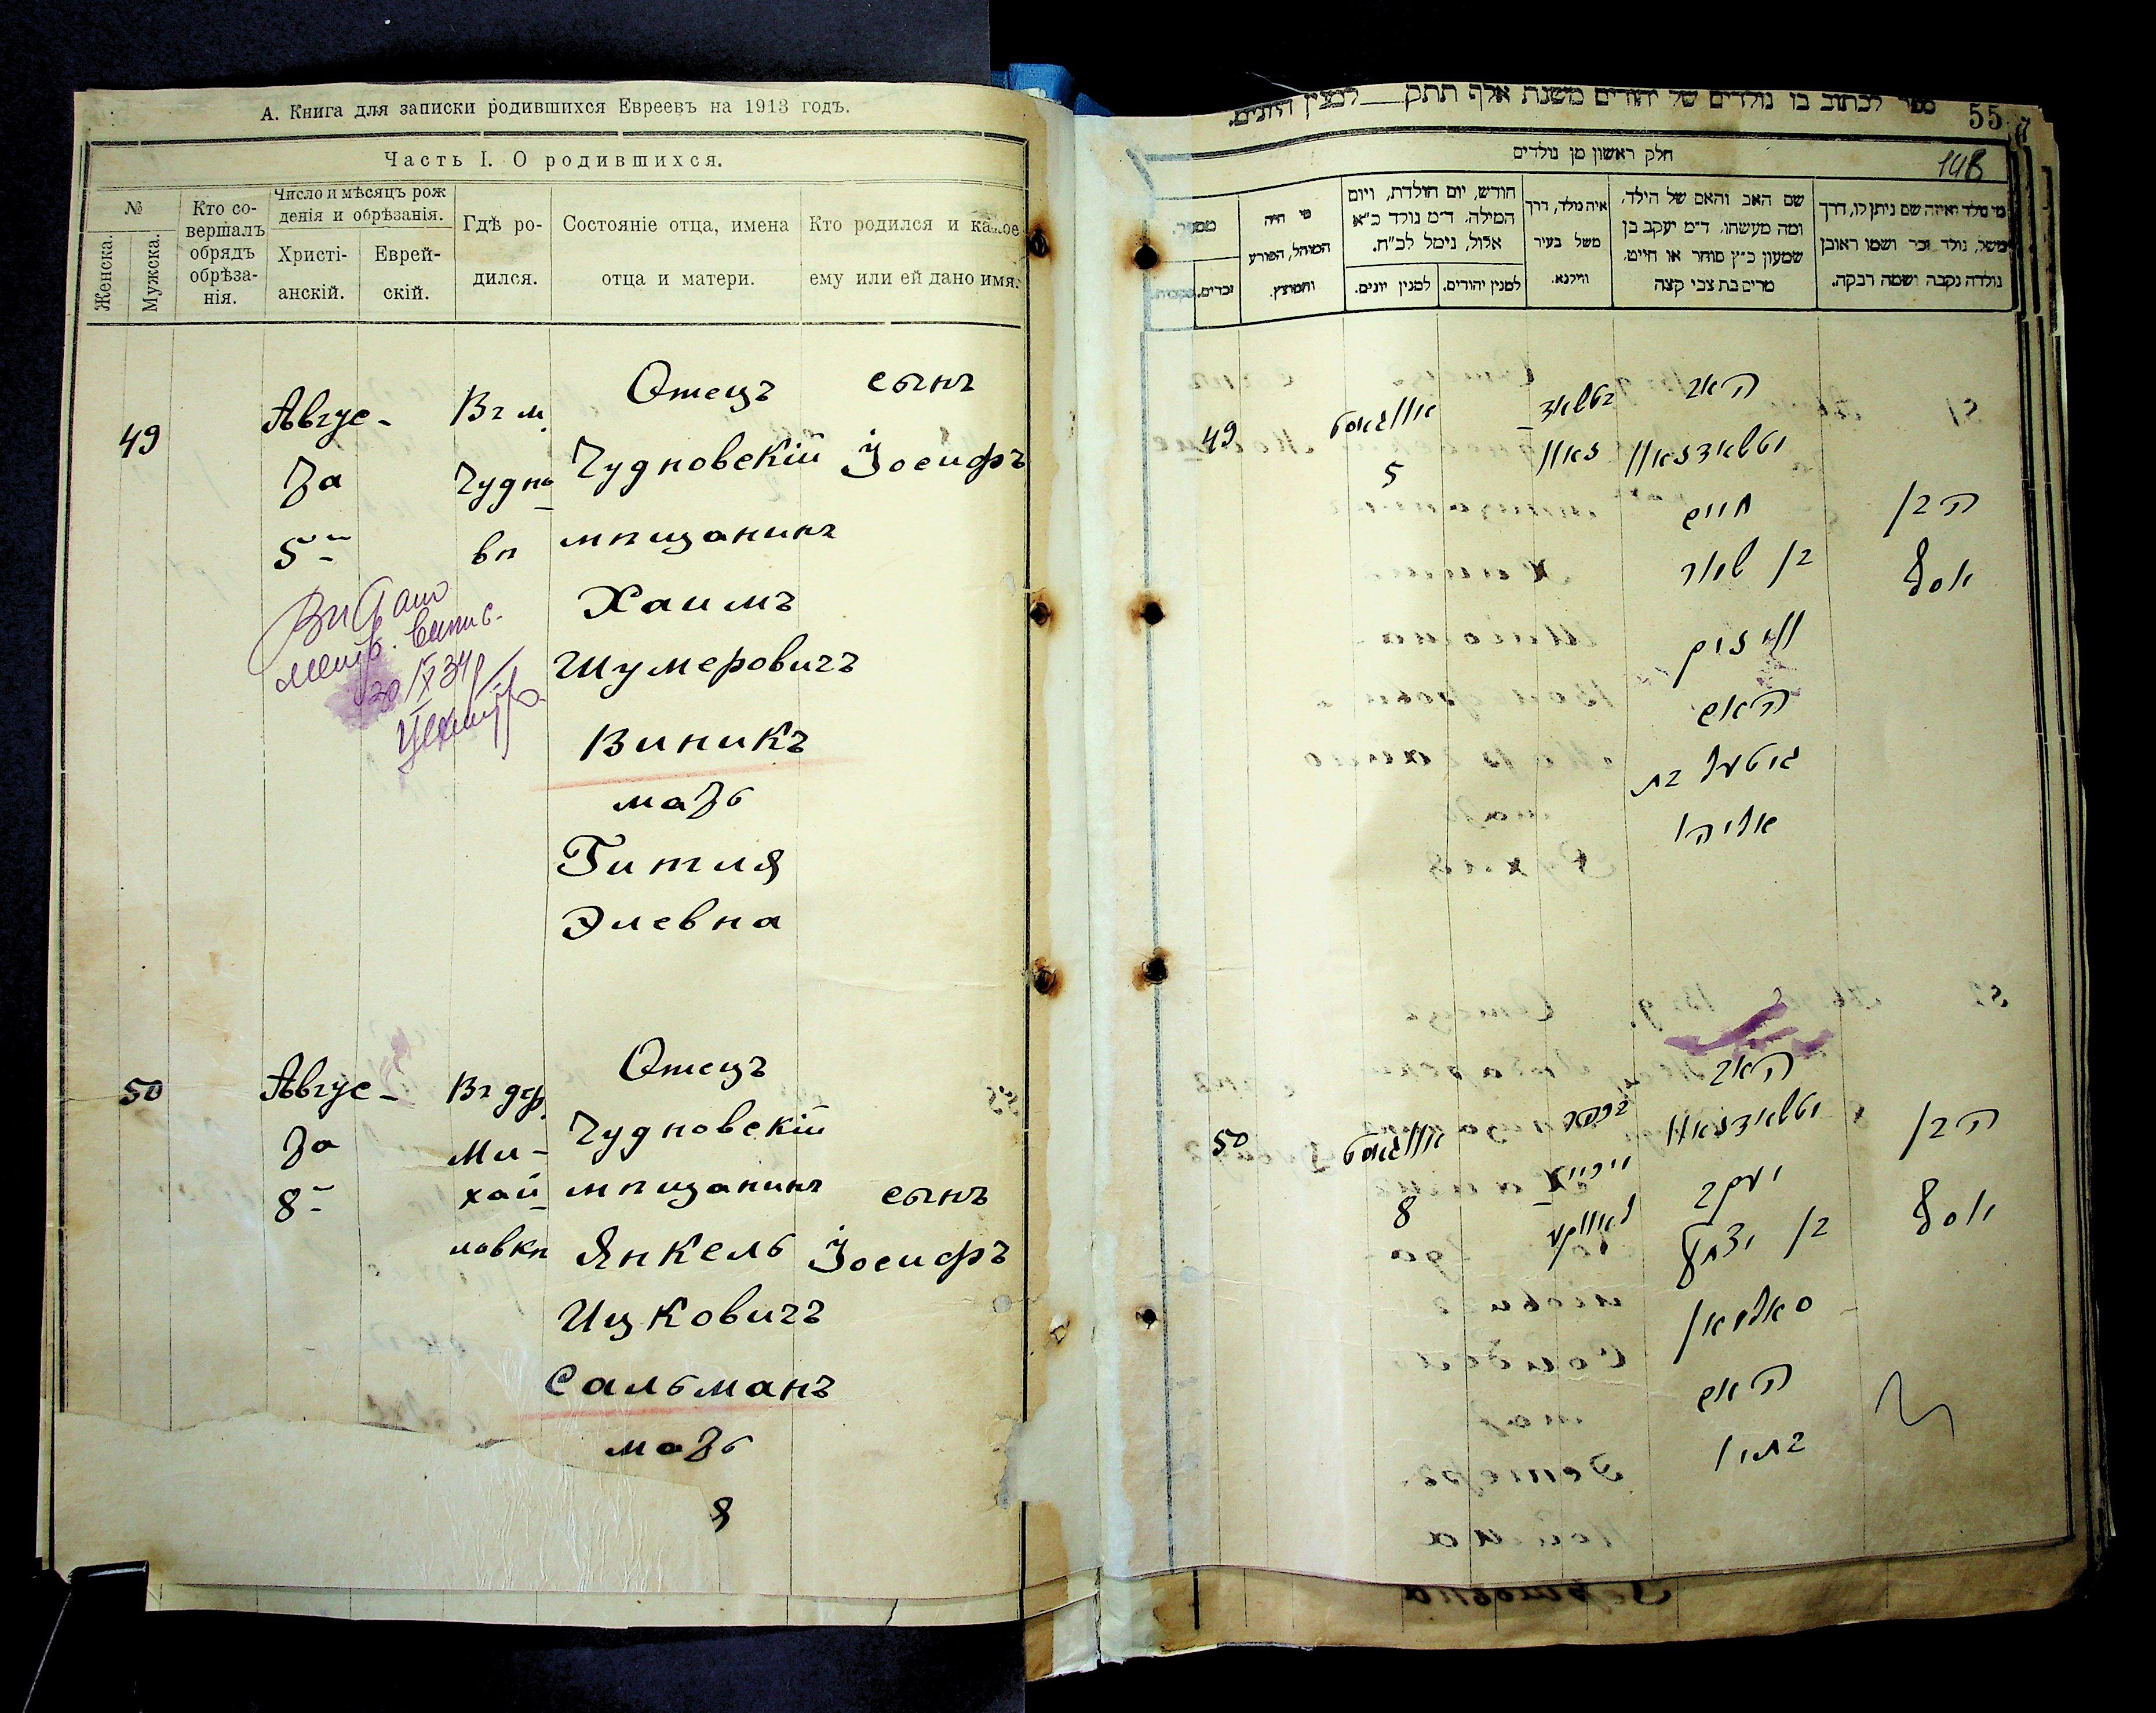 А. Книга для записки родившихся Евреевъ на 1913 годъ.
Часть I. О родившихся.
№
Женска.
Мужска.
Кто со-
вершалъ
обрядъ
обрѣза-
нія.
Число и мѣсяцъ рож
денія и обрѣзанія.
Христі-
анскій.
Еврей-
скій.
Гдѣ ро-
дился.
Состояніе отца, имена
отца и матери.
Кто родился и какое
ему или ей дано имя.
49
Авгус-
та
5
Въ м.
Чудно-
вѣ
Отецъ
Чудновскій
мѣщанинъ
Хаимъ
Шумеровичъ
Виникъ
мать
Гитля
Элевна
сынъ
Іосифъ
50
Авгус-
та
8
Въ дер.
Ми-
хай-
ловкѣ
Отецъ
Чудновскій
мѣщанинъ
Янкель
Ицковичъ
Сальманъ
мать
я
сынъ
Іосифъ
ספר לכתוב בו נולדים של יהודים משנת אלף תתק למנין היונים.
55
148
חלק ראשון מן נולדים
מי היה
המוהל, הפורע
והמוצץ.
זכרים.
חודש, יום הולדת, ויום
המילה. ד״מ נולד כ״א
אלול, נימל לכ״ח.
למנין יהודים.
למנין יונים.
איה נולד, דרך
משל בעיר
ווילנא.
שם האב והאם של הילד,
ומה מעשהו. ד״מ יעקב בן
שמעון כ״ץ סוחר או חייט.
מרים בת צבי קצה
מי נולד ואיזה שם ניתן לו, דרך
משל, נולד זכר ושמו ראובן
נולדה נקבה ושמה רבקה.
49
אווגוסט
5
האב
חיים
בן
האם
גיטל בת
אליהו
הבן
יוסף
50
אווגוסט
8
האב
יעקב
בן יצחק
סאלמאן
האם
הבן
יוסף